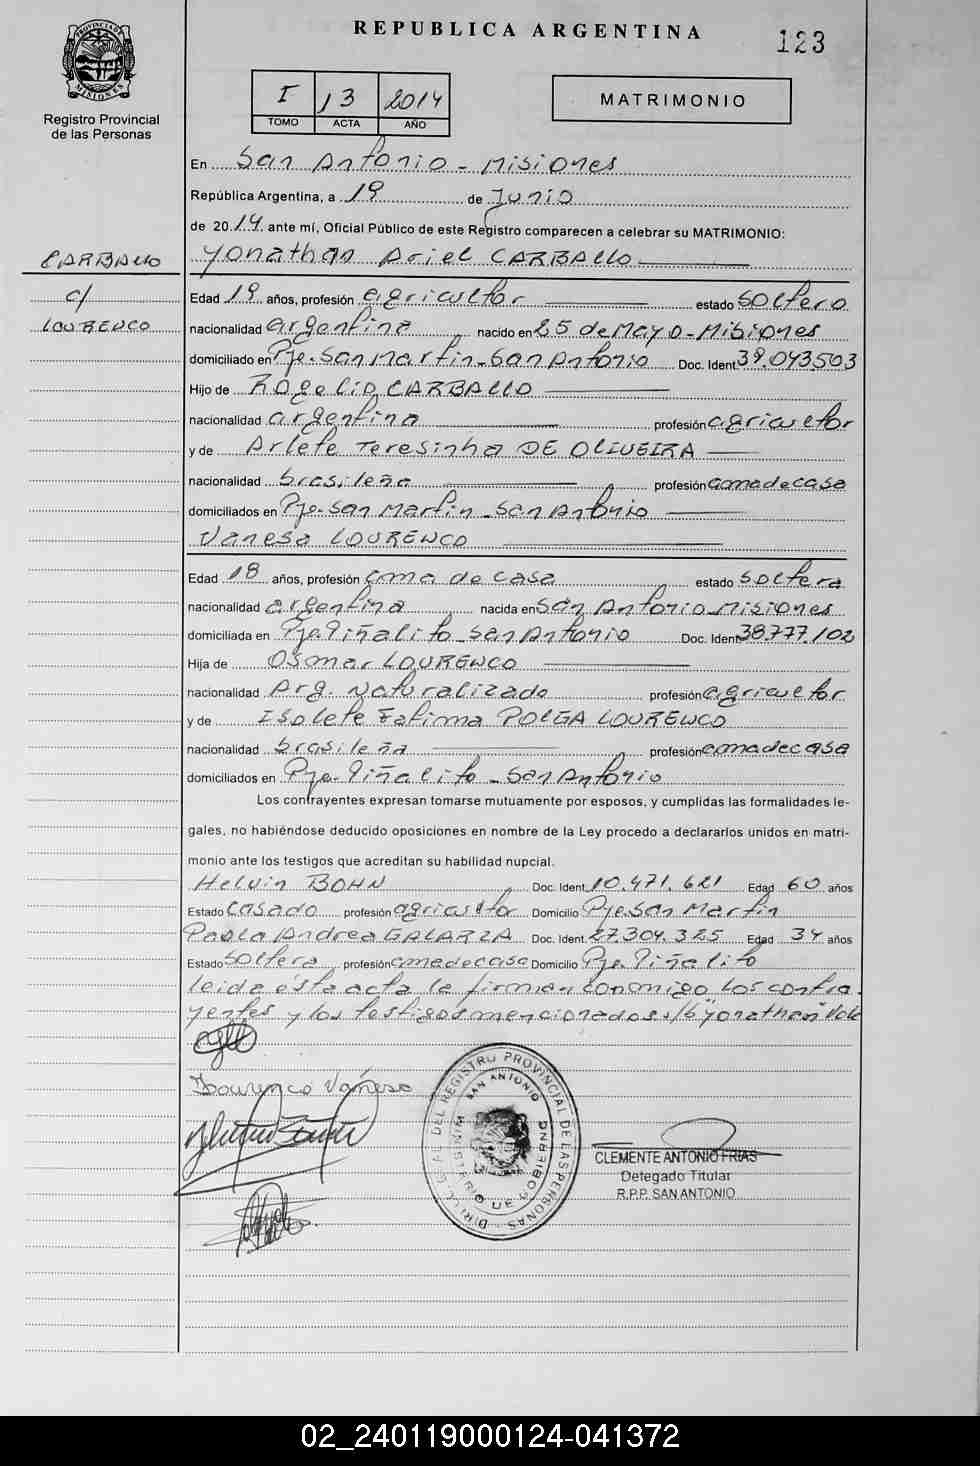 REPUBLICA ARGENTINA
123
PROVINCIA DE MISIONES
Registro Provincial
de las Personas
I 13 2014
TOMO ACTA AÑO
MATRIMONIO
En San Antonio - Misiones
República Argentina, a 19 de Junio
de 2014 ante mí, Oficial Público de este Registro comparecen a celebrar su MATRIMONIO:
CARBALLO
c/
LOURENCO
Yonathan Ariel CARBALLO
Edad 19 años, profesión agricultor estado soltero
nacionalidad argentina nacido en 25 de Mayo - Misiones
domiciliado en Pje. San Martin - San Antonio Doc. Ident 39.043.503
Hijo de Rogelio CARBALLO
nacionalidad argentina profesión agricultor
y de Arlete Teresinha DE OLIVEIRA
nacionalidad brasileña profesión ama de casa
domiciliados en Pje. San Martin - San Antonio
Vanesa LOURENCO
Edad 18 años, profesión ama de casa estado soltera
nacionalidad argentina nacida en San Antonio - Misiones
domiciliada en Pje. Piñalito - San Antonio Doc. Ident 38.777.102
Hija de Osmar LOURENCO
nacionalidad Arg. Naturalizado profesión agricultor
y de Isolete Fatima POLGA LOURENCO
nacionalidad brasileña profesión ama de casa
domiciliados en Pje. Piñalito - San Antonio
Los contrayentes expresan tomarse mutuamente por esposos, y cumplidas las formalidades le-
gales, no habiéndose deducido oposiciones en nombre de la Ley procedo a declararlos unidos en matri-
monio ante los testigos que acreditan su habilidad nupcial.
Helvin BOHN Doc. Ident. 10.471.621 Edad 60 años
Estado casado profesión agricultor Domicilio Pje. San Martin
Paola Andrea GALARZA Doc. Ident. 27.304.325 Edad 34 años
Estado soltera profesión ama de casa Domicilio Pje. Piñalito
leida esta acta la firman conmigo los contra-
yentes y los testigos mencionados. s/b "Yonathan" Vale
Lourenco Vanesa
DIR. GRAL. DEL REGISTRO PROVINCIAL DE LAS PERSONAS
SAN ANTONIO
MINISTERIO DE GOBIERNO
CLEMENTE ANTONIO FRIAS
Delegado Titular
R.P.P. SAN ANTONIO
02_240119000124-041372